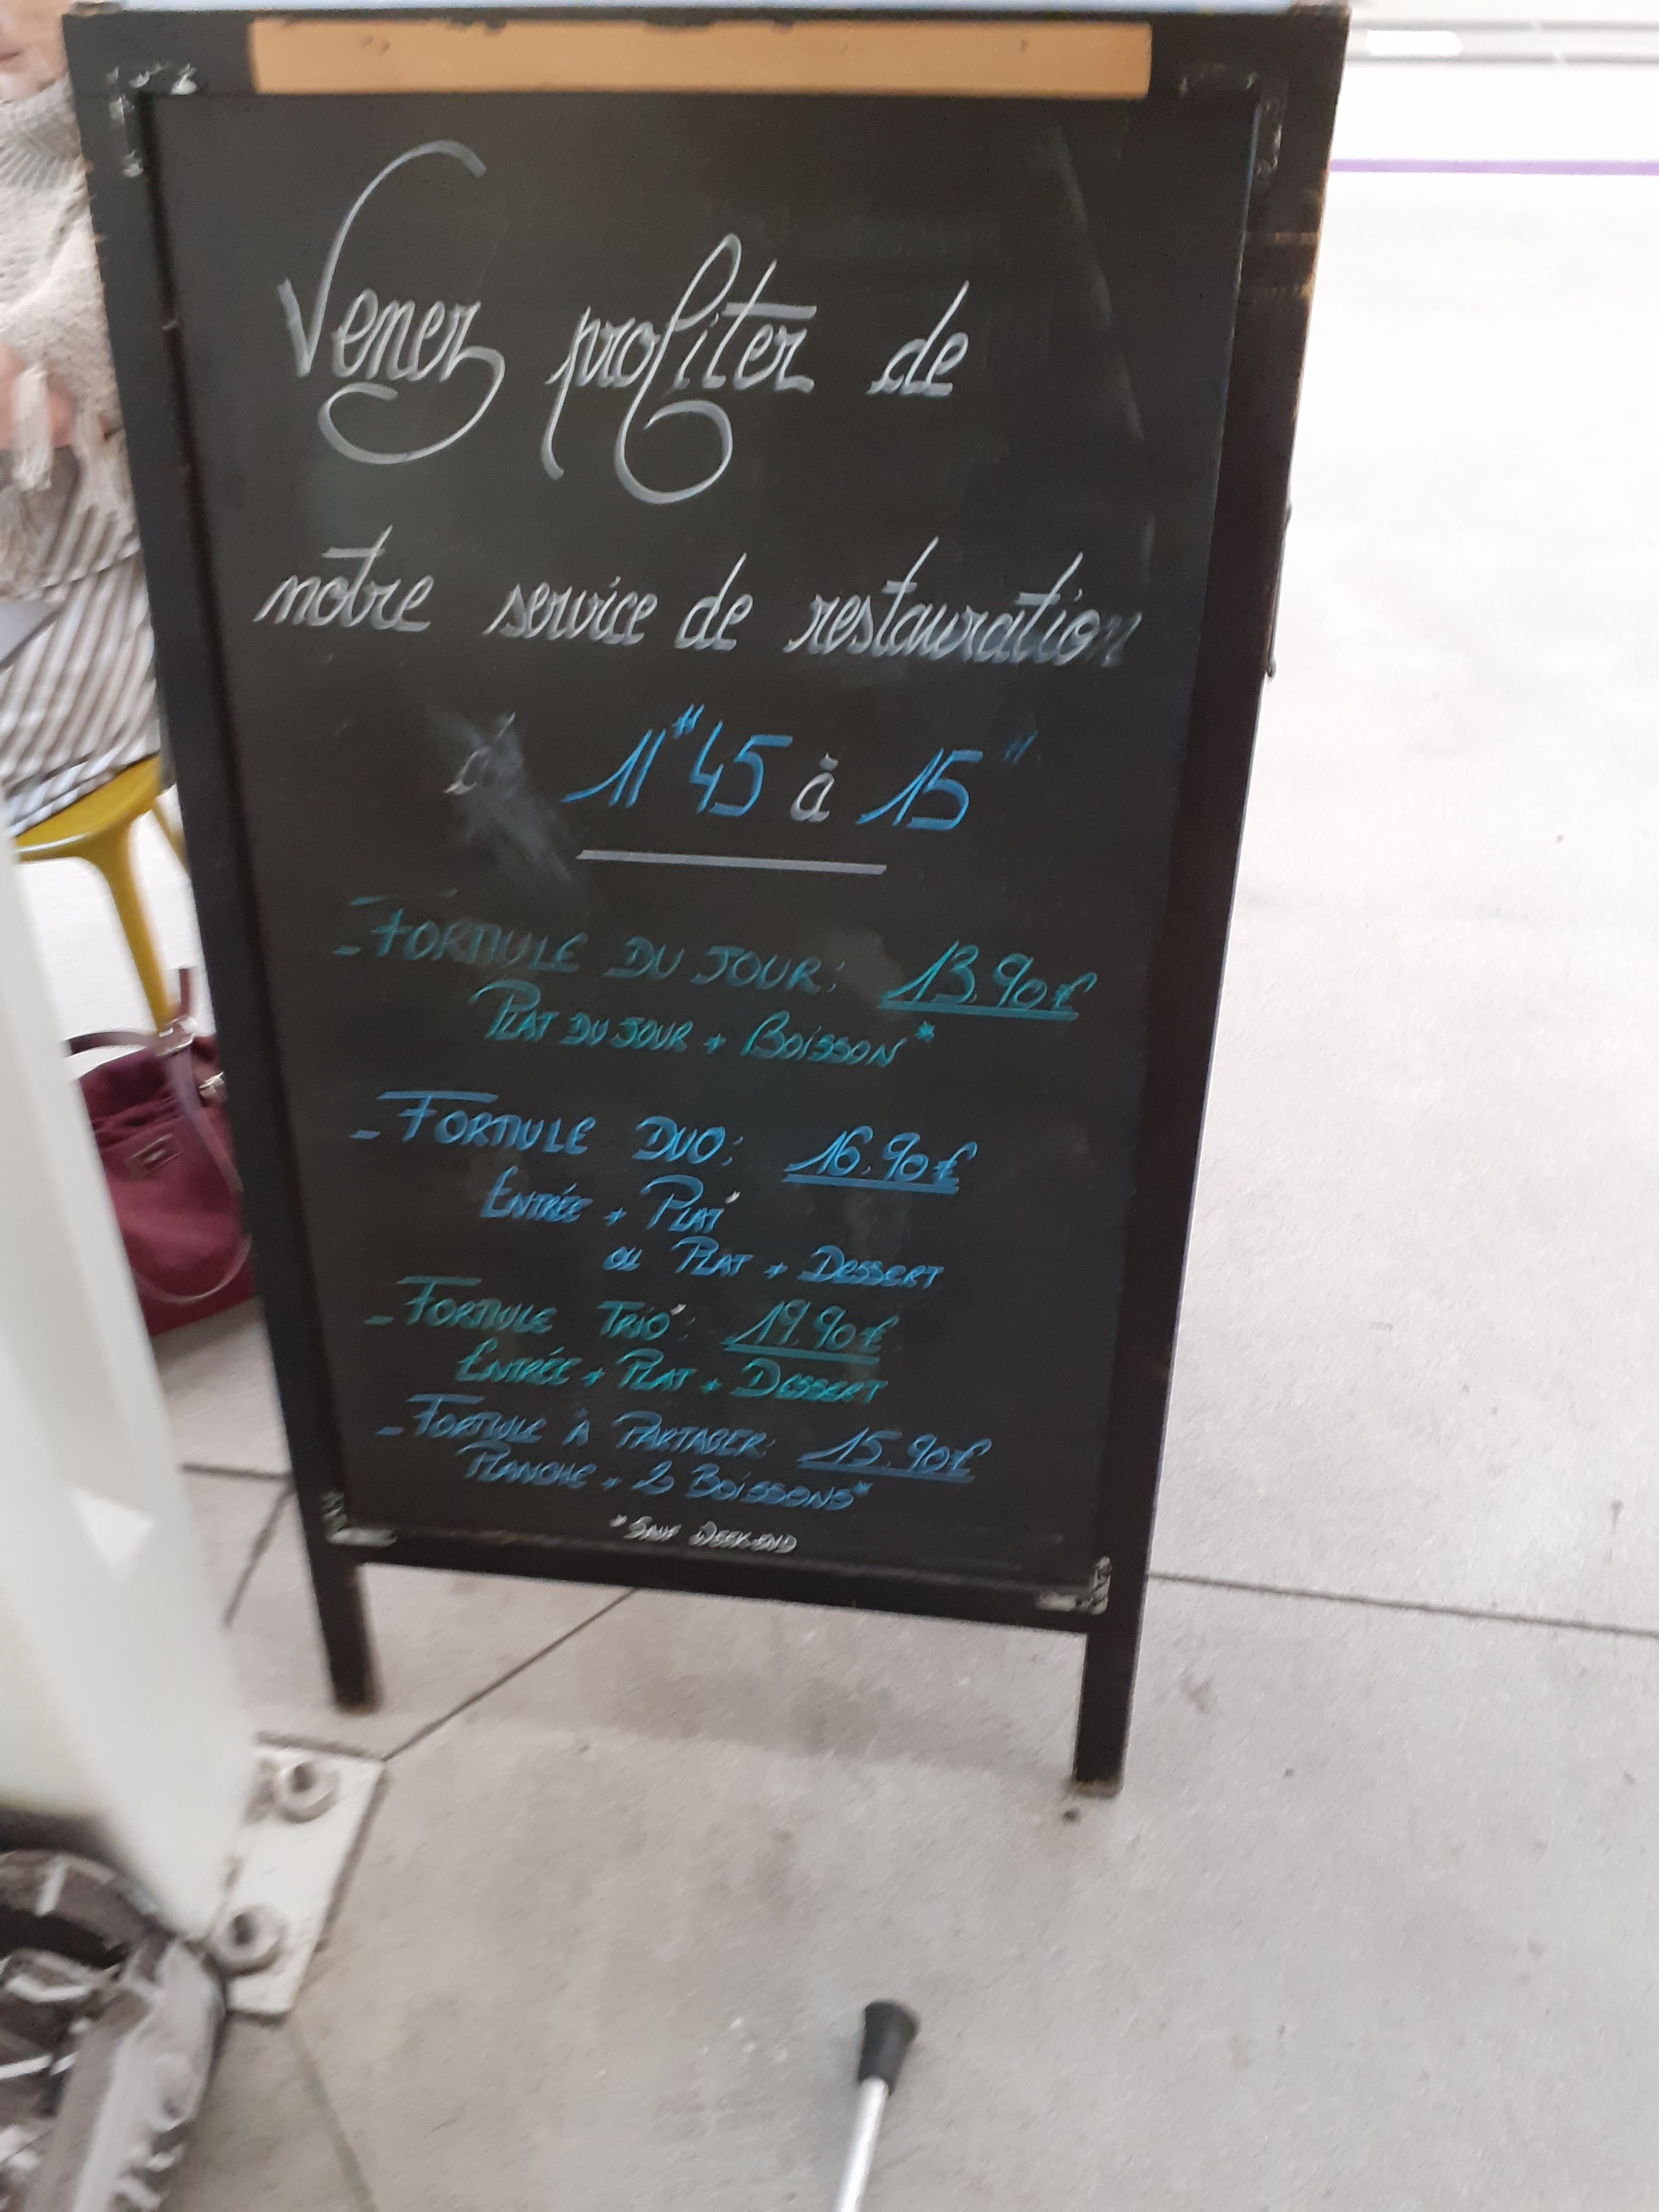 Venez profiter de
notre service de restauration
de 11H45 à 15H
- FORMULE DU JOUR: 13.90€
PLAT DU JOUR + BOISSON*
- FORMULE DUO: 16.90€
ENTRÉE + PLAT*
ou PLAT + DESSERT
- FORMULE TRIO*: 19.90€
ENTRÉE + PLAT + DESSERT
- FORMULE À PARTAGER: 15.90€
PLANCHE + 2 BOISSONS*
* SAUF WEEK-END